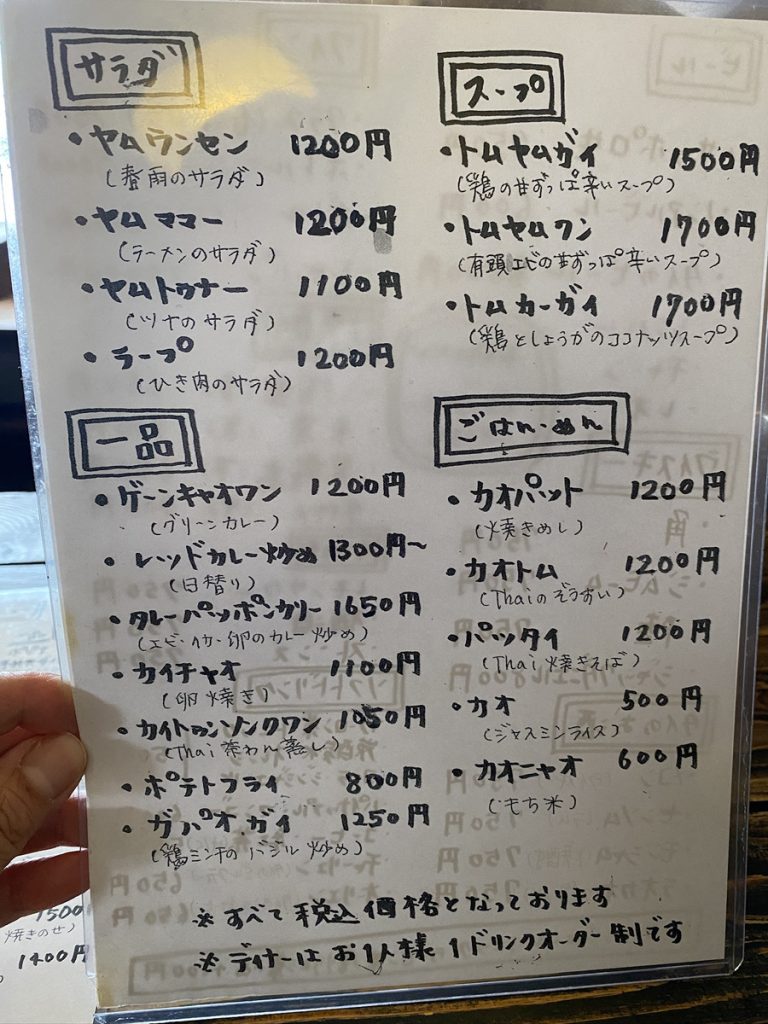 サラダ
・ヤムウンセン 1200円
(春雨のサラダ)
・ヤムママー 1200円
(ラーメンのサラダ)
・ヤムトゥナー 1100円
(ツナのサラダ)
・ラープ 1200円
(ひき肉のサラダ)
スープ
・トムヤムガイ 1500円
(鶏の甘ずっぱ辛いスープ)
・トムヤムクン 1700円
(有頭エビの甘ずっぱ辛いスープ)
・トムカーガイ 1700円
(鶏としょうがのココナッツスープ)
一品
・ゲーンキャオワン 1200円
(グリーンカレー)
・レッドカレー炒め 1300円〜
(日替り)
・タレーパッポンカリー 1650円
(エビ・イカ・卵のカレー炒め)
・カイチャオ 1100円
(卵焼き)
・カイトゥンソンクワン 1050円
(Thai茶わん蒸し)
・ポテトフライ 800円
・ガパオガイ 1250円
(鶏ミンチのバジル炒め)
ごはん・めん
・カオパット 1200円
(焼きめし)
・カオトム 1200円
(Thaiのぞうすい)
・パッタイ 1200円
(Thai焼きそば)
・カオ 500円
(ジャスミンライス)
・カオニャオ 600円
(もち米)
※すべて税込価格となっております
※ディナーはお1人様1ドリンクオーダー制です
1500
焼きのせ)
1400円